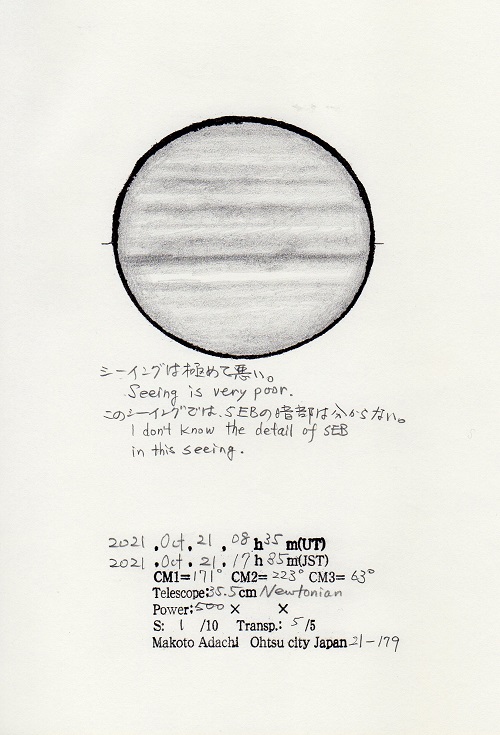 シーイングは極めて悪い。
Seeing is very poor.
このシーイングでは、SEBの暗部は分からない。
I don't know the detail of SEB
in this seeing.
2021 . Oct . 21 . 08 h 35 m(UT)
2021 . Oct . 21 . 17 h 35 m(JST)
CM1= 171° CM2= 223° CM3= 63°
Telescope: 35.5cm Newtonian
Power: 500 × ×
S: 1 /10 Transp.: 5 /5
Makoto Adachi Ohtsu city Japan 21-179